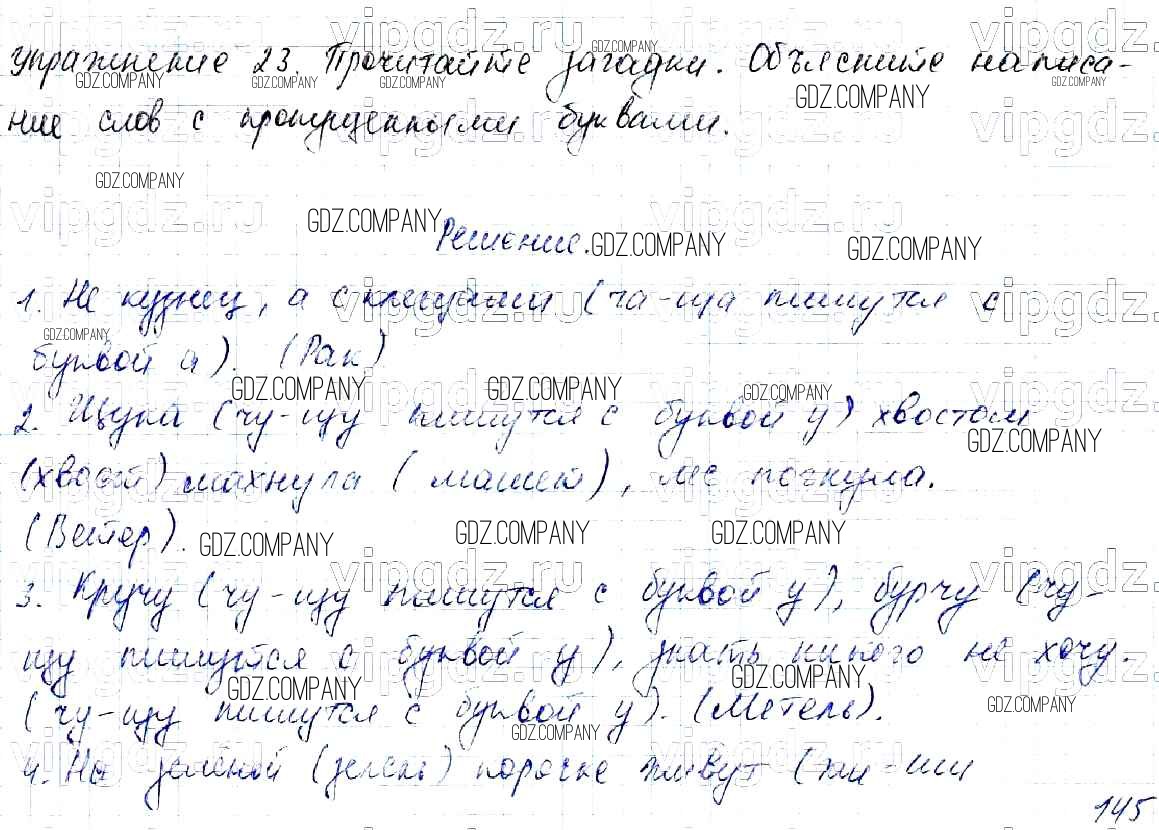 Упражнение 23. Прочитайте загадки. Объясните написа-
ние слов с пропущенными буквами.
Решение.
1. Не кузнец, а с клещами (ча-ща пишутся с
буквой а). (Рак)
2. Щука (чу-щу пишутся с буквой у) хвостом
(хвост) махнула ( машет), лес погнула.
(Ветер).
3. Кручу (чу-щу пишутся с буквой у), бурчу (чу-
щу пишутся с буквой у), знать никого не хочу.
(чу-щу пишутся с буквой у). (Метель).
4. На зелёной (зелень) горочке живут (жи-ши
145
vipgdz.ru
GDZ.COMPANY